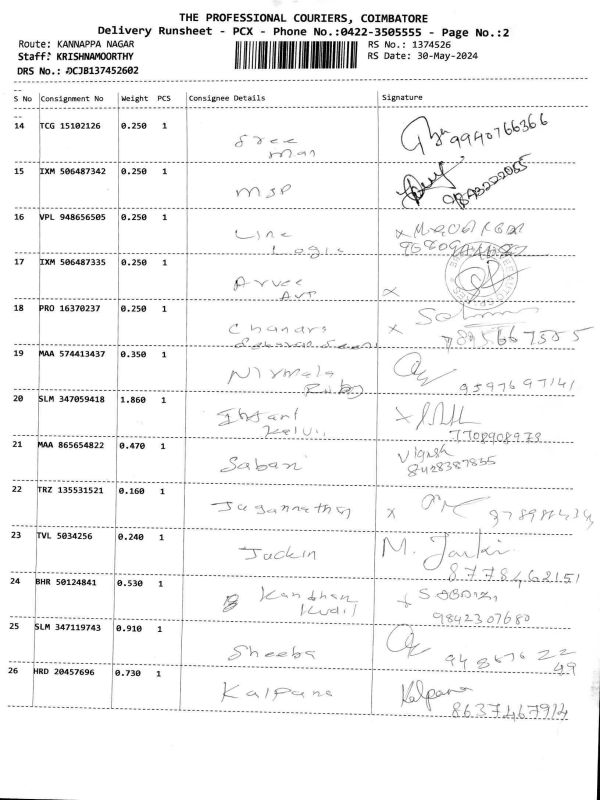 THE PROFESSIONAL COURIERS, COIMBATORE
Delivery Runsheet - PCX - Phone No.:0422-3505555 - Page No.:2
Route: KANNAPPA NAGAR RS No.: 1374526
Staff: KRISHNAMOORTHY RS Date: 30-May-2024
DRS No.: DCJB137452602
S No Consignment No Weight PCS Consignee Details Signature
14 TCG 15102126 0.250 1 Sree
Man 9940766366
15 IXM 506487342 0.250 1 MSP 9843222065
16 VPL 948656505 0.250 1 Line
Logic
17 IXM 506487335 0.250 1 Arvee
AVP x
18 PRO 16370237 0.250 1 Chandra x
19 MAA 574413437 0.350 1 Nirmala 9597697141
20 SLM 347059418 1.860 1 Kelvin x
7708908978
21 MAA 865654822 0.470 1 Sabari Vignesh
8428387855
22 TRZ 135531521 0.160 1 Jagannathan x
23 TVL 5034256 0.240 1 Jackin M. Jackin
8778462151
24 BHR 50124841 0.530 1 Kandhan
Kudil 9842307680
25 SLM 347119743 0.910 1 Sheeba
26 HRD 20457696 0.730 1 Kalpana Kalpana
8637467914